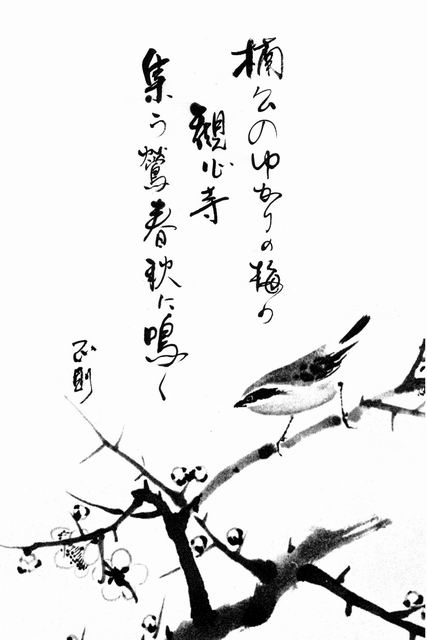 楠公のゆかりの梅の
観心寺
集う鶯春秋に鳴く
正則